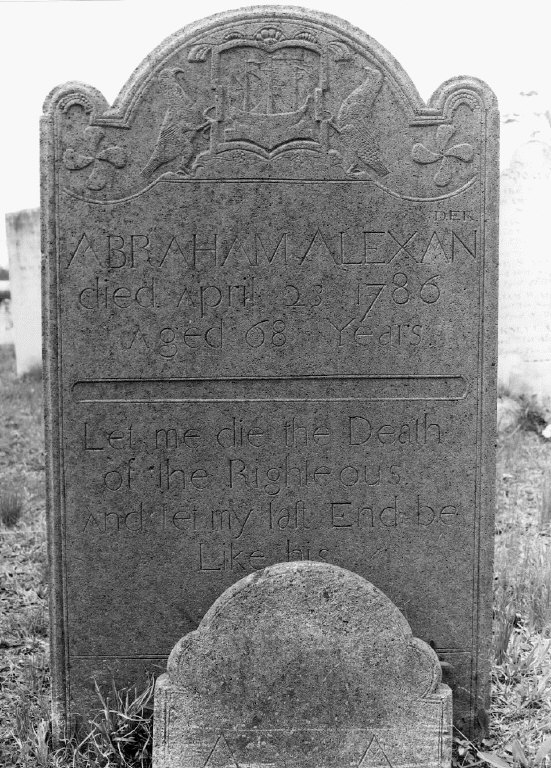 DER
ABRAHAM ALEXAN
died April 23 1786
Aged 68 Years.
Let me die the Death
of the Righteous.
And let my laſt End be
Like his
A A